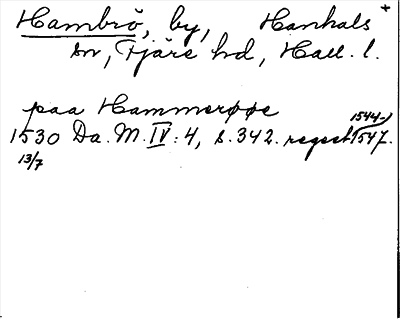 Hambrö, by, Hanhals +
sn, Fjäre hd, Hall. l.
paa Hammerøøe
1530 Da. M. IV: 4, s. 342. regest 1544-1547.
13/7